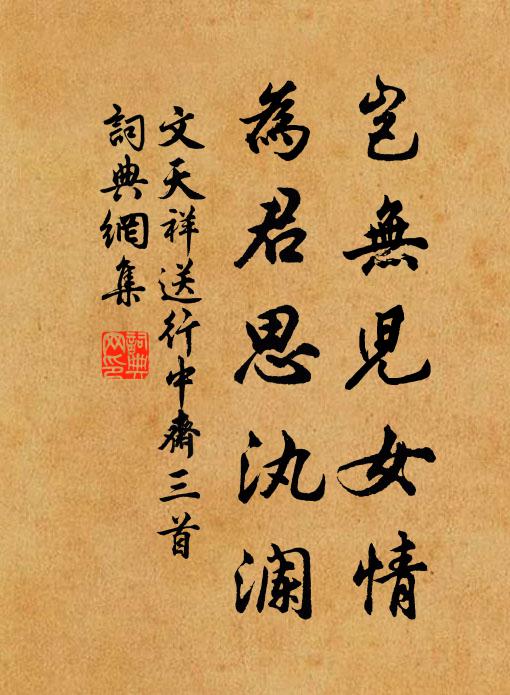 豈無兒女情
為君思汍瀾
文天祥送行中齋三首
詞典網集
詞典網印